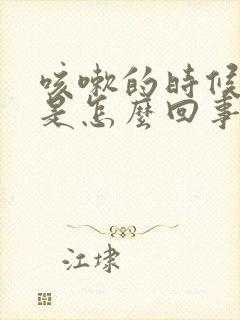 咳嗽的時候
是怎麼回事
江埭